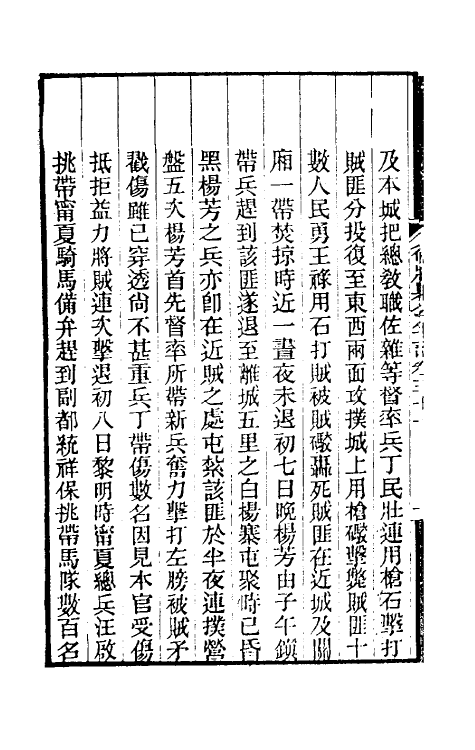 及本城把總敎職佐雜等督率兵丁民壯連用槍石擊打
賊匪分投復至東西兩面攻撲城上用槍礮擊斃賊匪十
數人民勇王祿用石打賊被賊礮轟死賊匪在近城及關
廂一帶焚掠時近一晝夜未退初七日晚楊芳由子午鎭
帶兵趕到該匪遂退至離城五里之白楊寨屯聚時已昏
黑楊芳之兵亦卽在近賊之處屯紮該匪於半夜連撲營
盤五次楊芳首先督率所帶新兵奮力擊打左膀被賊矛
戳傷雖已穿透尙不甚重兵丁帶傷數名因見本官受傷
抵拒益力將賊連次擊退初八日黎明時甯夏總兵汪啟
挑帶甯夏騎馬備弁趕到副都統祥保挑帶馬隊數百名